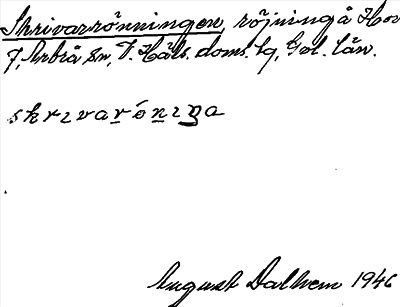 Skrivarrönningen, röjning å Hov
7, Arbrå sn, V. Häls. doms. lg, Gvl. län.
skrɪvarónɪŋa
August Dalhem 1946